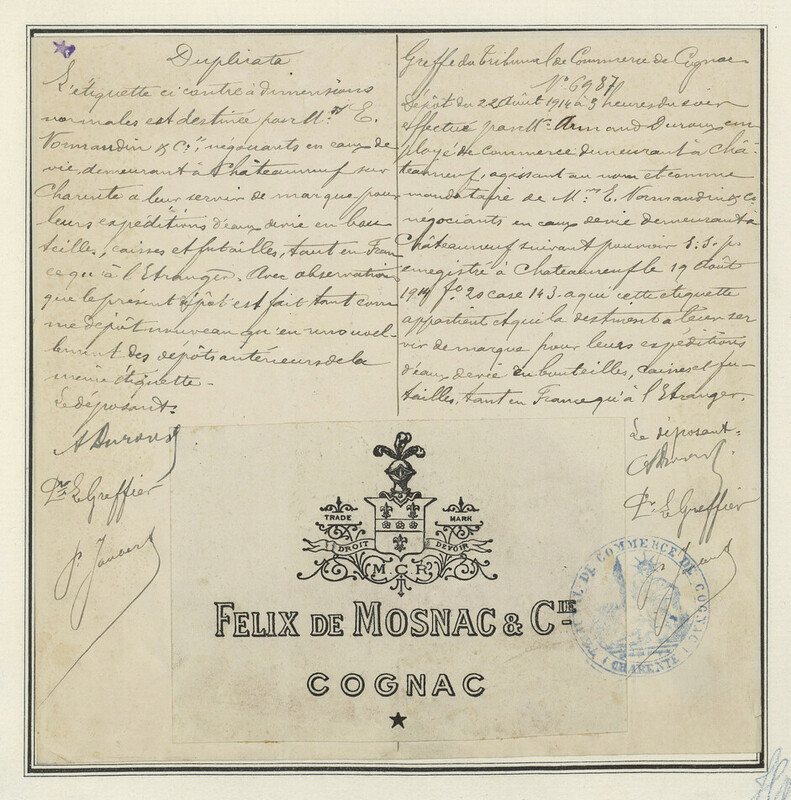 Duplicata
L'étiquette ci contre à dimensions
normales est destinée par M.rs E.
Normandin & Cie, négociants en eaux de
vie, demeurant à Châteauneuf sur
Charente à leur servir de marque pour
leurs expéditions d'eaux de vie en bou
teilles, caisses et futailles, tant en Fran
ce qu'à l'Etranger. Avec observation
que le présent dépôt est fait tant com
me dépôt nouveau qu'en renouvel-
lement des dépôts antérieurs de la
même étiquette -
Le déposant.
A Duroux
Pr. Le Greffier
Greffe du Tribunal de Commerce de Cognac
No. 6987
Dépôt du 22 Août 1914 à 3 heures du soir
effectué par Mr. Armand Duroux em
ployé de Commerce demeurant à Châ-
teauneuf, agissant au nom et comme
mandataire de M.rs E. Normandin & Cie
négociants en eaux de vie demeurant à
Châteauneuf suivant pouvoir s. s. p.
enregistré à Chateauneuf le 19 Août
1914 fo. 20 case 143. a qui cette etiquette
appartient et qui la destinent à leur ser
vir de marque pour leurs expéditions
d'eaux de vie en bouteilles, caisses et fu-
tailles, tant en France qu'à l'Etranger.
Le déposant =
A Duroux
Pr. Le Greffier
TRADE MARK
DROIT DEVOIR
M C R
FELIX DE MOSNAC & CIE
COGNAC
TRIBUNAL DE COMMERCE DE COGNAC
(CHARENTE)